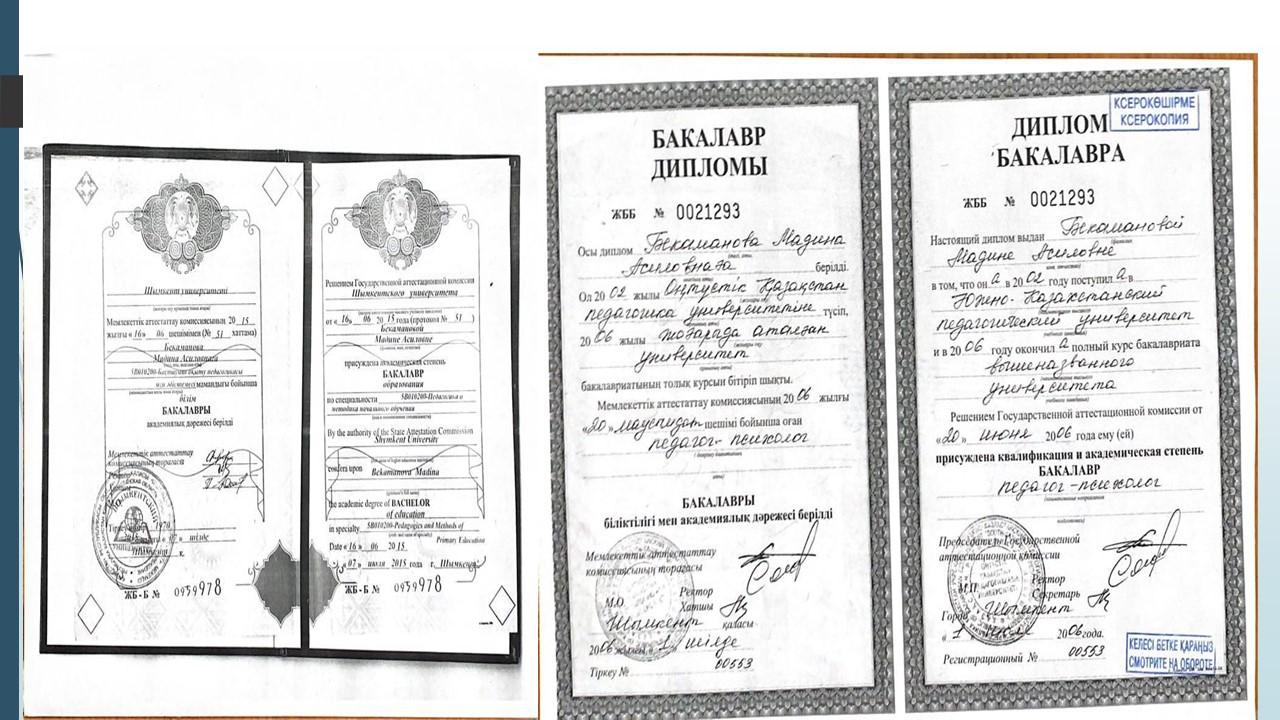 Шымкент университеті
Мемлекеттік аттестаттау комиссиясының 20 15
жылғы «16» 06 шешімімен (№ 51 хаттама)
Бекаманова
Мадина Асиловнаға
5В010200-Бастауыш оқыту педагогикасы
мен әдістемесі мамандығы бойынша
білім
БАКАЛАВРЫ
академиялық дәрежесі берілді
Мемлекеттік аттестаттау
комиссиясының төрағасы
1970
2015 «07» шілде
Шымкент қ.
ЖБ - Б № 0959978
Решением Государственной аттестационной комиссии
Шымкентского университета
от «16» 06 20 15 года (протокол № 51 )
Бекамановой
Мадине Асиловне
присуждена академическая степень
БАКАЛАВР
образования
по специальности 5В010200-Педагогика и
методика начального обучения
By the authority of the State Attestation Commission
Shymkent University
confers upon Bekamanova Madina
the academic degree of BACHELOR
of education
in specialty 5B010200-Pedagogics and Methods of
Primary Education
Date «16» 06 20 15
«07» июля 2015 года г. Шымкент
ЖБ - Б № 0959978
БАКАЛАВР
ДИПЛОМЫ
ЖББ № 0021293
Осы диплом Бекаманова Мадина
Асиловнаға берілді.
Ол 20 02 жылы Оңтүстік Қазақстан
педагогика университетіне түсіп,
20 06 жылы жоғарыда аталған
университет
бакалавриатының толық курсын бітіріп шықты.
Мемлекеттік аттестаттау комиссиясының 20 06 жылғы
«20» маусымдағы шешімі бойынша оған
педагог-психолог
БАКАЛАВРЫ
біліктілігі мен академиялық дәрежесі берілді
Мемлекеттік аттестаттау
комиссиясының төрағасы
Ректор
М.О. Хатшы
Шымкент қаласы
2006 жылғы «1» шілде
Тіркеу № 00553
КСЕРОКӨШІРМЕ
КСЕРОКОПИЯ
ДИПЛОМ
БАКАЛАВРА
ЖББ № 0021293
Настоящий диплом выдан Бекамановой
Мадине Асиловне
в том, что он а в 20 02 году поступил а в
Южно-Казахстанский
педагогический университет
и в 20 06 году окончил а полный курс бакалавриата
вышеназванного
университета
Решением Государственной аттестационной комиссии от
«20» июня 2006 года ему (ей)
присуждена квалификация и академическая степень
БАКАЛАВР
педагог-психолог
Председатель Государственной
аттестационной комиссии
Ректор
М.П. Секретарь
Город Шымкент
«1» июля 2006 года.
Регистрационный № 00553
КЕЛЕСІ БЕТКЕ ҚАРАҢЫЗ
СМОТРИТЕ НА ОБОРОТЕ